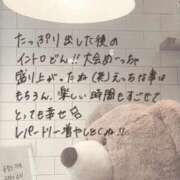 たっぷり出した後の
イントロどん!! 大会めーっちゃ
盛り上がったね(笑)えっちな事は
もちろん、楽しい時間もすごせて
とっても幸せ
レパートリー増やしとくね!!